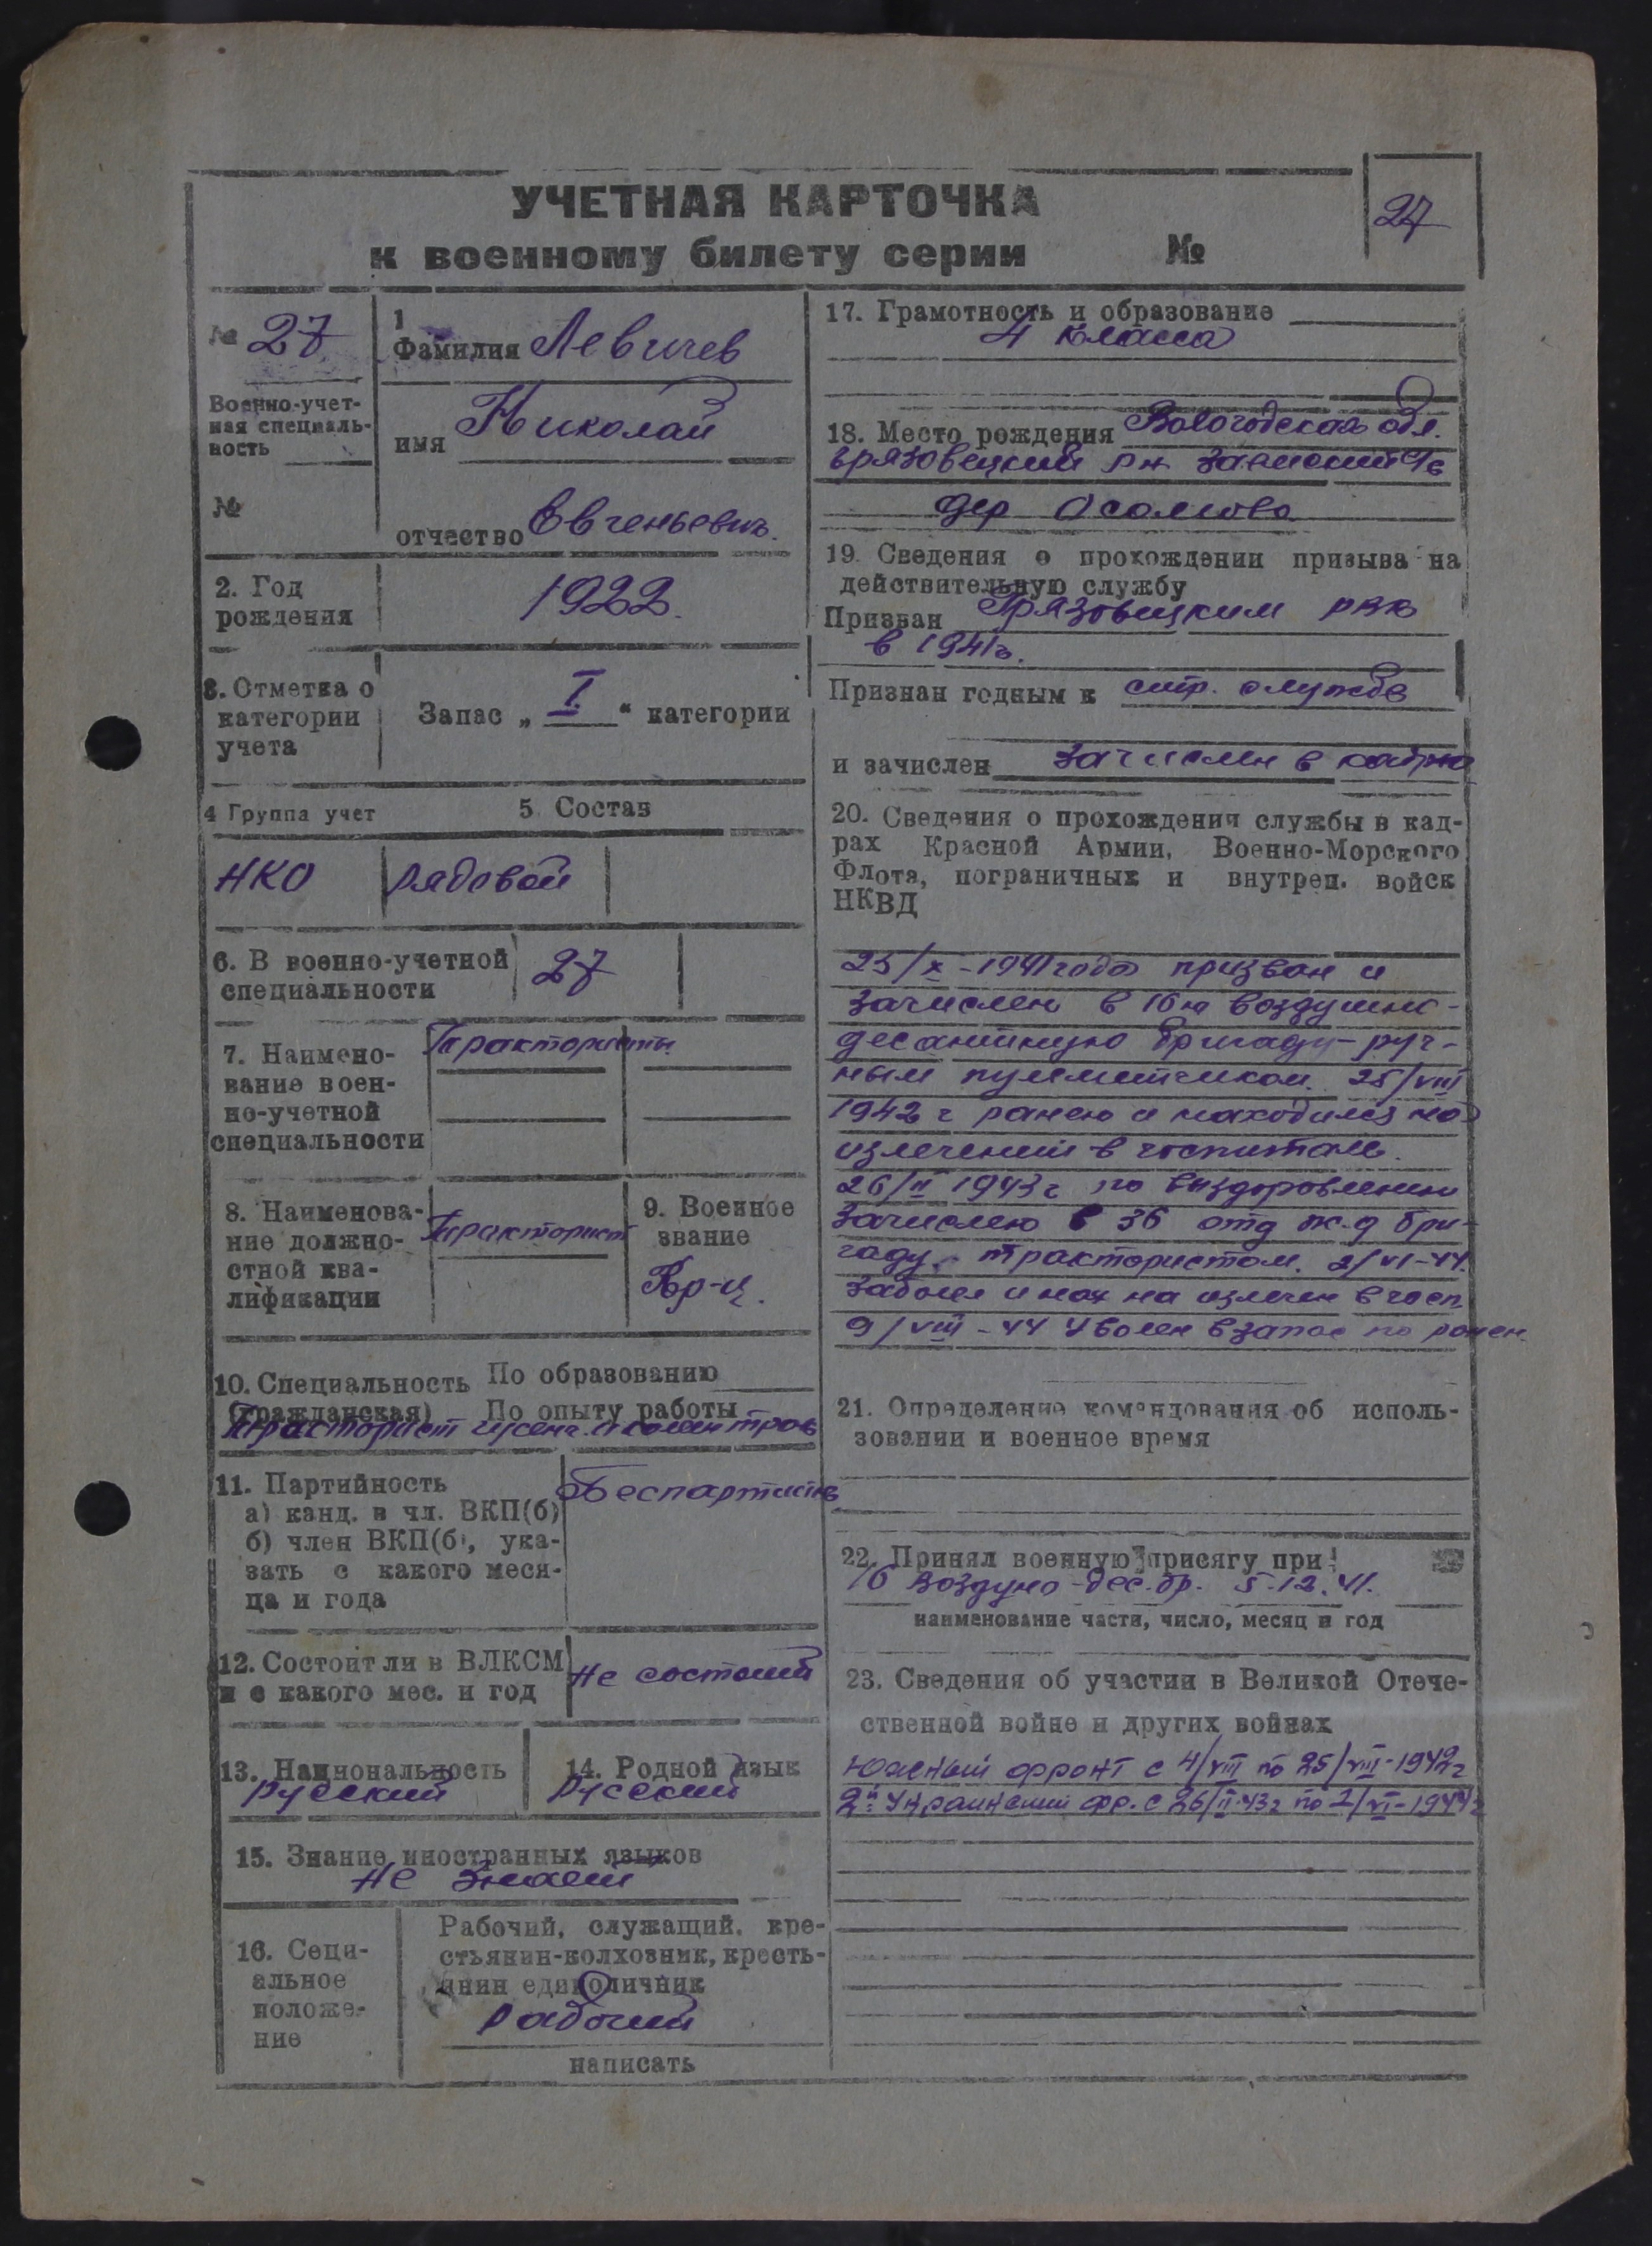 УЧЕТНАЯ КАРТОЧКА
к военному билету серии №
27
№ 27
Военно-учет-
ная специаль-
ность
№
1
Фамилия Левичев
имя Николай
отчество Евгеньевич.
2. Год
рождения
1922.
3. Отметка о
категории
учета
Запас „ I “ категории
4 Группа учет
5 Состав
НКО
рядовой
6. В военно-учетной
специальности
27
7. Наимено-
вание воен-
но-учетной
специальности
Трактористы
8. Наименова-
ние должно-
стной ква-
лификации
Тракторист
9. Военное
звание
Кр-ц.
10. Специальность
(гражданская)
По образованию
По опыту работы
Тракторист
11. Партийность
а) канд. в чл. ВКП(б)
б) член ВКП(б), ука-
зать с какого меся-
ца и года
Беспартийн
12. Состоит ли в ВЛКСМ
и с какого мес. и год
не состоит
13. Национальность
русский
14. Родной язык
русский
15. Знание иностранных языков
не знает
16. Соци-
альное
положе-
ние
Рабочий, служащий, кре-
стьянин-колхозник, кресть-
янин единоличник
рабочий
написать
17. Грамотность и образование
4 класса
18. Место рождения Вологодская обл.
грязовецкий р-н с/с
дер
19. Сведения о прохождении призыва на
действительную службу
Призван Грязовецким РВК
в 1941г.
Признан годным к стр. службе
и зачислен зачислен в
20. Сведения о прохождении службы в кад-
рах Красной Армии, Военно-Морского
Флота, пограничных и внутрен. войск
НКВД
23/X-1941 года призван и
зачислен в 16ю воздушно-
десантную бригаду - руч-
ным пулеметчиком. 25/VIII
1942 г ранен и находился на
излечении в госпитале.
26/II 1943 г по выздоровлению
зачислен в 36 отд ж.д бри-
гаду трактористом. 2/VI-44.
заболел и нах на излечен в госп
9/VIII-44 Уволен в запас по ранен.
21. Определение командования об исполь-
зовании и военное время
22. Принял военную присягу при
16 воздушно-дес. бр. 5.12.41.
наименование части, число, месяц и год
23. Сведения об участии в Великой Отече-
ственной войне и других войнах
Южный фронт с 4/VIII по 25/VIII-1942г
2й Украинский фр. с 26/II-43г по 1/VI-1944г